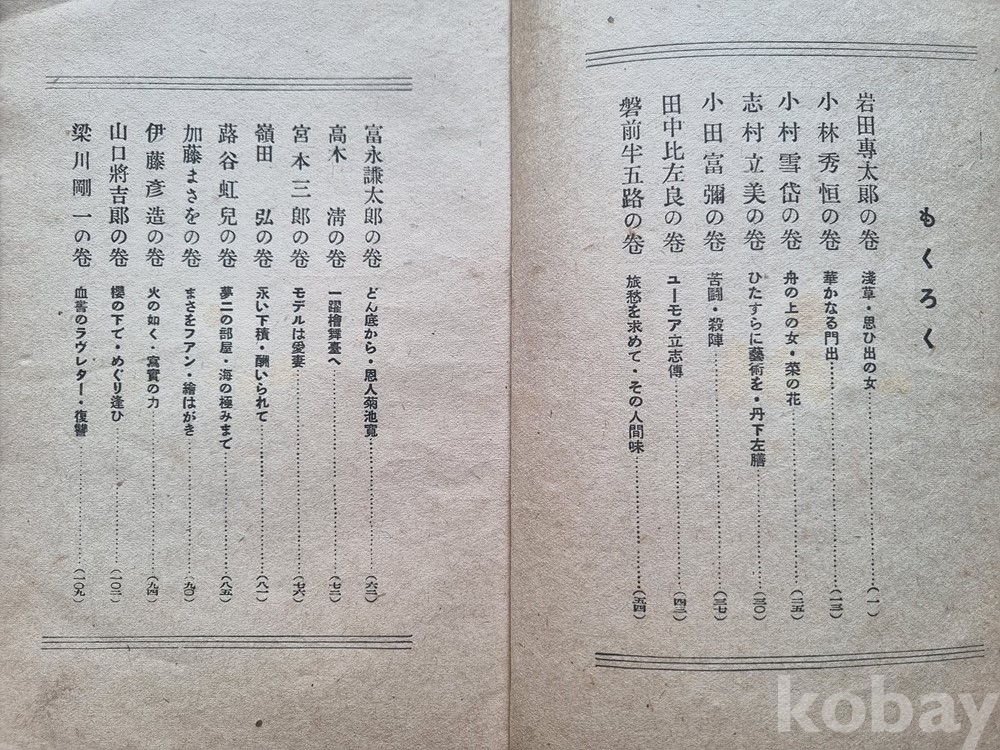 もくろく
岩田專太郎の卷 淺草・思ひ出の女…………(一)
小林秀恒の卷 華かなる門出…………(一三)
小村雪岱の卷 舟の上の女・菜の花…………(二五)
志村立美の卷 ひたすらに藝術を・丹下左膳…………(三〇)
小田富彌の卷 苦鬪・殺陣…………(三七)
田中比左良の卷 ユーモア立志傳…………(四三)
磐前半五路の卷 旅愁を求めて・その人間味…………(五四)
富永謙太郎の卷 どん底から・恩人菊池寬…………(六二)
高木淸の卷 一躍檜舞臺へ…………(七二)
宮本三郎の卷 モデルは愛妻…………(七六)
嶺田弘の卷 永い下積・酬いられて…………(八一)
蕗谷虹兒の卷 夢二の部屋・海の極みまで…………(八五)
加藤まさをの卷 まさをフアン・繪はがき…………(九〇)
伊藤彦造の卷 火の如く・寫實の力…………(九四)
山口將吉郎の卷 櫻の下で・めぐり逢ひ…………(一〇二)
梁川剛一の卷 血書のラヴレター・復讐…………(一〇九)
kobay